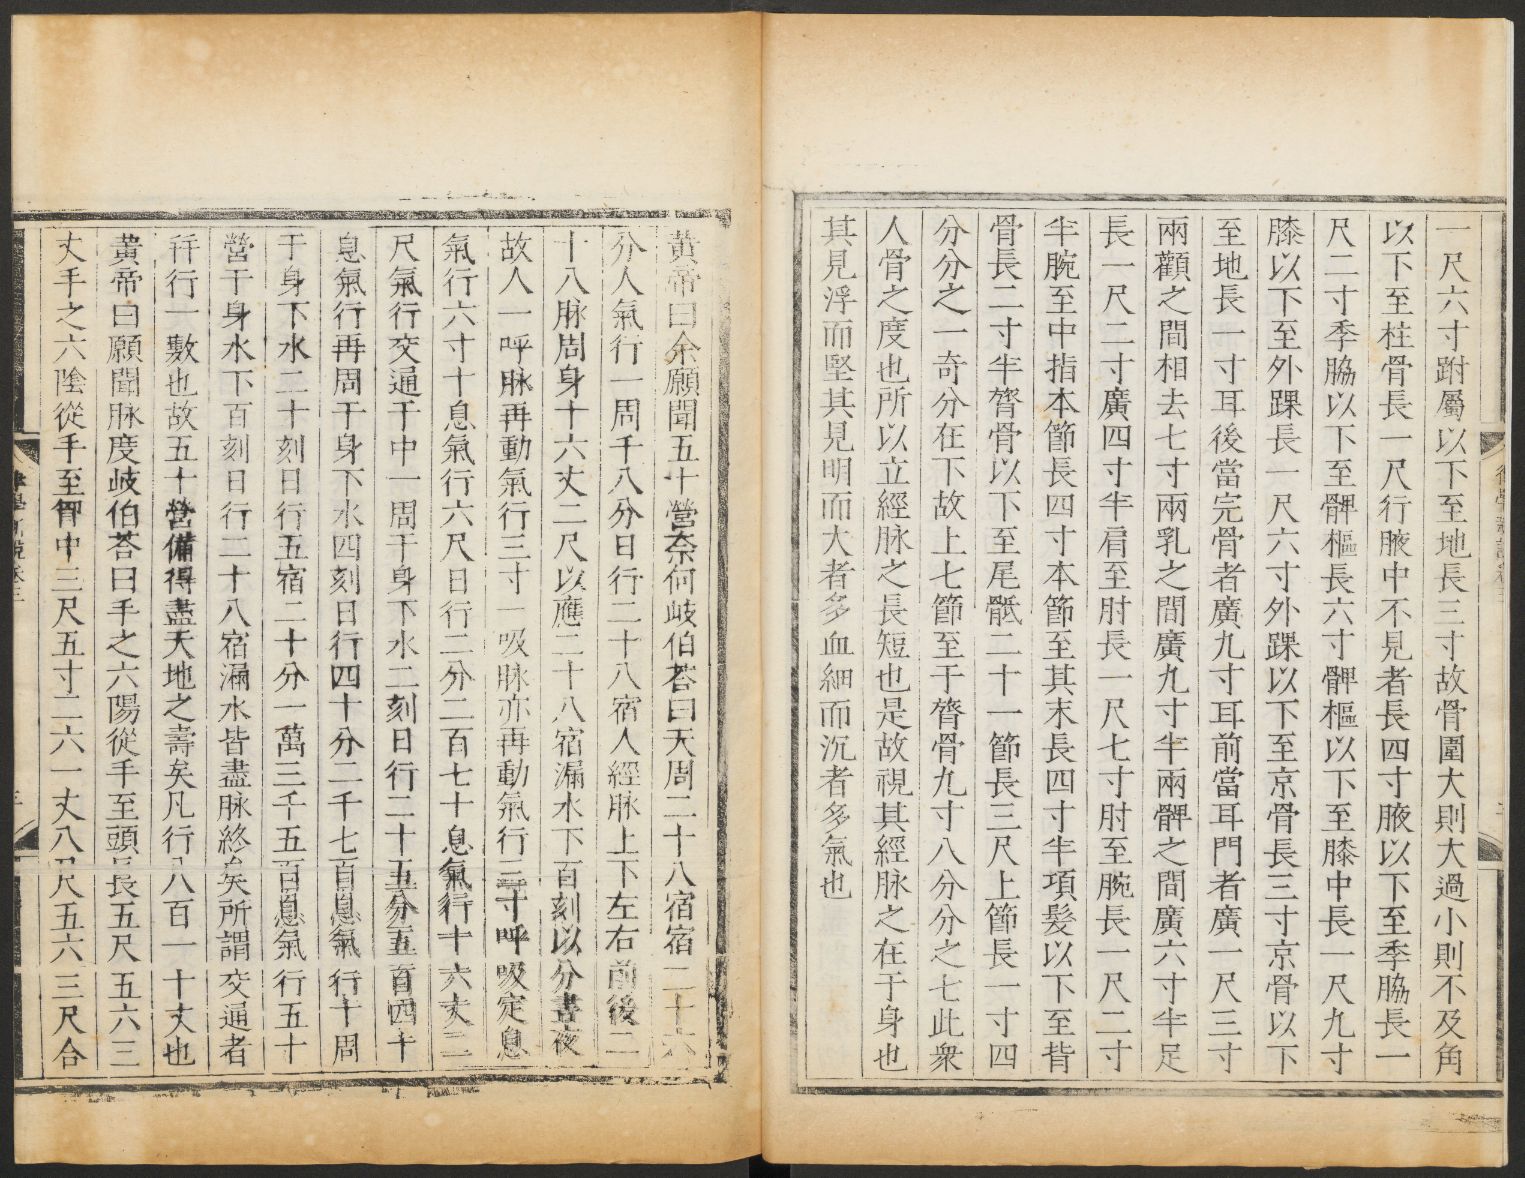 一尺六寸跗屬以下至地長三寸故骨圍大則大過小則不及角
以下至柱骨長一尺行腋中不見者長四寸腋以下至季脇長一
尺二寸季脇以下至髀樞長六寸髀樞以下至膝中長一尺九寸
膝以下至外踝長一尺六寸外踝以下至京骨長三寸京骨以下
至地長一寸耳後當完骨者廣九寸耳前當耳門者廣一尺三寸
兩顴之間相去七寸兩乳之間廣九寸半兩髀之間廣六寸半足
長一尺二寸廣四寸半肩至肘長一尺七寸肘至腕長一尺二寸
半腕至中指本節長四寸本節至其末長四寸半項髮以下至背
骨長二寸半膂骨以下至尾骶二十一節長三尺上節長一寸四
分分之一奇分在下故上七節至于膂骨九寸八分分之七此衆
人骨之度也所以立經脉之長短也是故視其經脉之在于身也
其見浮而堅其見明而大者多血細而沉者多氣也
黃帝曰余願聞五十營奈何岐伯荅曰天周二十八宿宿三十六
分人氣行一周千八分日行二十八宿人經脉上下左右前後二
十八脉周身十六丈二尺以應二十八宿漏水下百刻以分晝夜
故人一呼脉再動氣行三寸一吸脉亦再動氣行三寸呼吸定息
氣行六寸十息氣行六尺日行二分二百七十息氣行十六丈二
尺氣行交通于中一周于身下水二刻日行二十五分五百四十
息氣行再周于身下水四刻日行四十分二千七百息氣行十周
于身下水二十刻日行五宿二十分一萬三千五百息氣行五十
營于身水下百刻日行二十八宿漏水皆盡脉終矣所謂交通者
并行一數也故五十營備得盡天地之壽矣凡行八百一十丈也
黃帝曰願聞脉度岐伯荅曰手之六陽從手至頭長五尺五六三
丈手之六陰從手至胷中三尺五寸二六一丈八尺五六三尺合
律學新說卷三